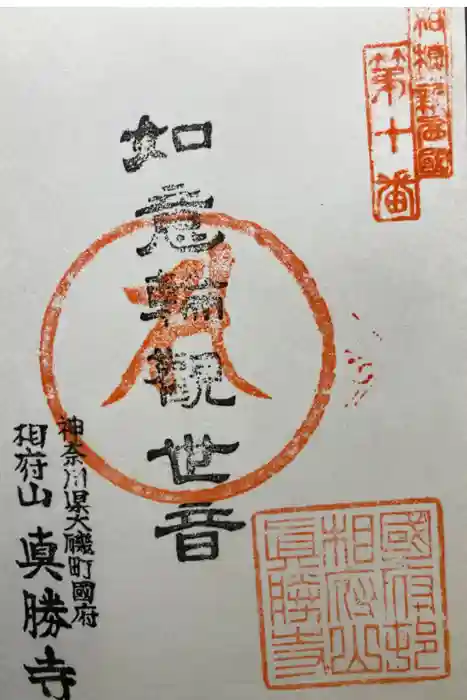 相模新西國
第十番
如意輪觀世音
神奈川県大磯町國府
相府山 真勝寺
國府邨
相府山
真勝寺